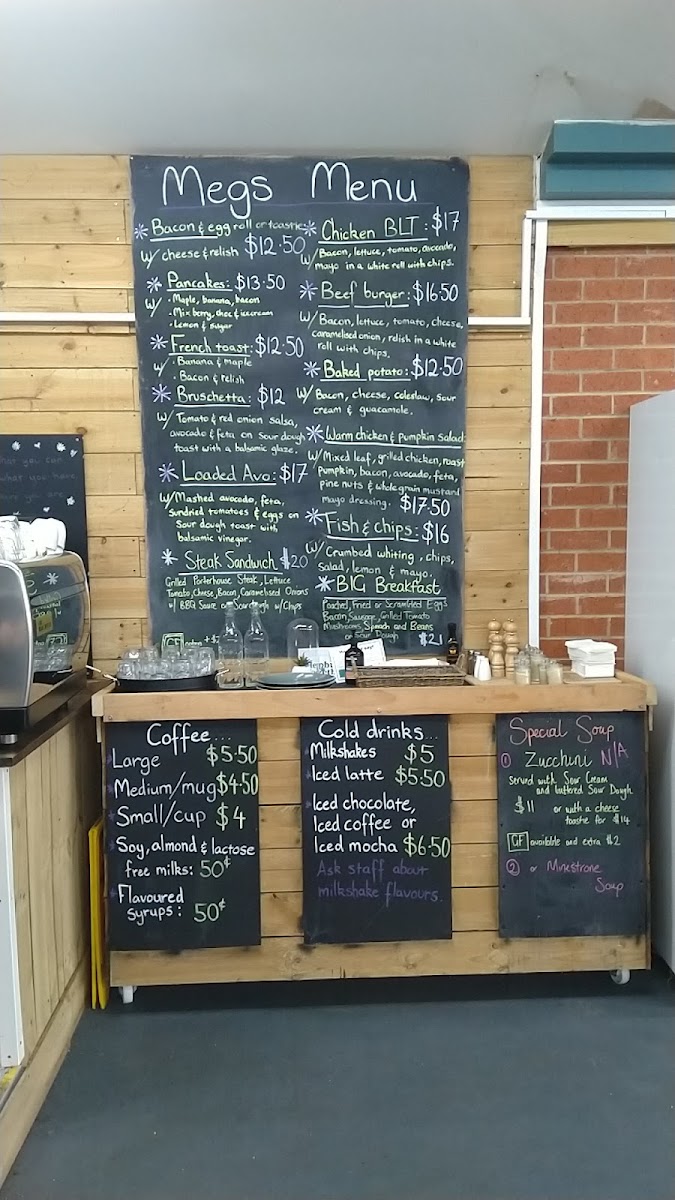 Megs Menu
* Bacon & egg roll or toastie
W/ cheese & relish $12.50
* Pancakes: $13.50
W/ • Maple, banana, bacon
• Mix berry, choc & icecream
• Lemon & sugar
* French toast: $12.50
W/ • Banana & maple
• Bacon & relish
* Bruschetta: $12
W/ Tomato & red onion salsa,
avocado & feta on sour dough
toast with a balsamic glaze.
* Loaded Avo: $17
W/ Mashed avocado, feta,
Sundried tomatoes & eggs on
Sour dough toast with
balsamic vinegar.
* Steak Sandwich $20
Grilled Porterhouse Steak, Lettuce
Tomato, Cheese, Bacon, Caramelised Onions
w/ BBQ Sauce on Sourdough w/ Chips
GF
* Chicken BLT: $17
W/ Bacon, lettuce, tomato, avocado,
mayo in a white roll with chips.
* Beef burger: $16.50
W/ Bacon, lettuce, tomato, cheese,
caramelised onion, relish in a white
roll with chips.
* Baked potato: $12.50
W/ Bacon, cheese, coleslaw, sour
cream & guacamole.
* Warm chicken & pumpkin salad
W/ Mixed leaf, grilled chicken, roast
pumpkin, bacon, avocado, feta,
pine nuts & wholegrain mustard
mayo dressing. $17.50
* Fish & chips: $16
W/ Crumbed whiting, chips,
salad, lemon & mayo.
* BIG Breakfast
Poached, Fried or Scrambled Eggs
Bacon, Sausage, Grilled Tomato
Mushrooms, Spinach and Beans
on Sour Dough $21
Coffee....
Large $5.50
Medium/mug $4.50
Small/cup $4
Soy, almond & lactose
free milks: 50¢
Flavoured
syrups: 50¢
Cold drinks...
Milkshakes $5
Iced latte $5.50
Iced chocolate,
Iced coffee or
Iced mocha $6.50
Ask staff about
milkshake flavours.
Special Soup
① Zucchini N/A
served with Sour Cream
and buttered Sour Dough
$11 or with a cheese
toastie for $14
GF available and extra $2
② or Minestrone
Soup